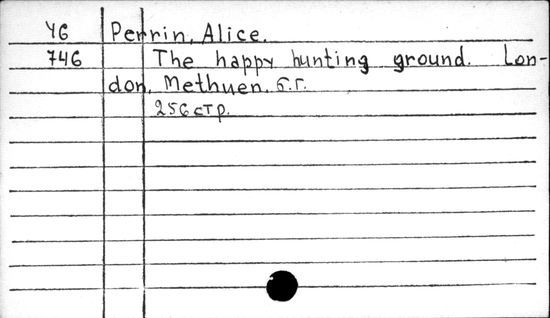 Y6 Perrin, Alice.
746 The happy hunting ground. Lon-
don, Methuen, б.г.
256 стр.